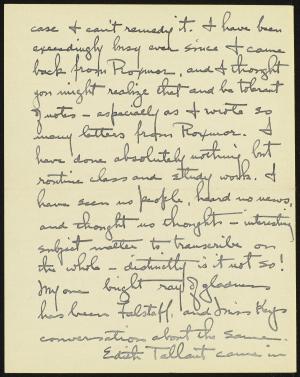 case I can't remedy it. I have been
exceedingly busy ever since I came
back from Roxmor, and I thought
you might realize that and be tolerant
of notes – especially as I wrote so
many letters from Roxmor. I
have done absolutely nothing but
routine class and study work. I
have seen no people, heard no news,
and thought no thoughts – interesting
subject matter to transcribe on
the whole – distinctly is it not so!
My one bright ray of gladness
has been Falstaff, and Miss Keys
conversations about the same.
Edith Tallant came in